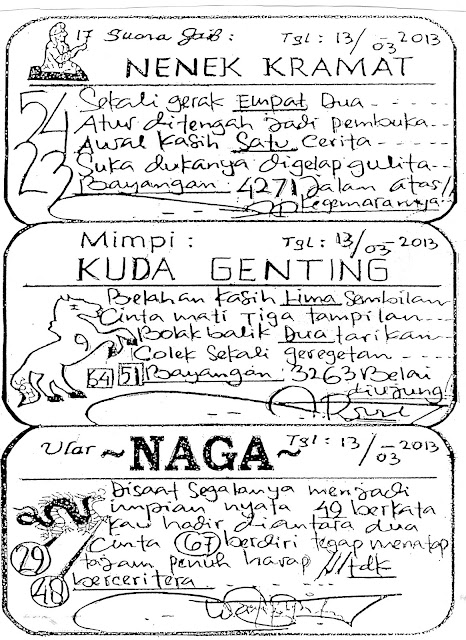 17 Suara Gaib : Tgl : 13/-03-2013
NENEK KRAMAT
54 Sekali gerak Empat Dua
Atur ditengah jadi pembuka
Awal kasih Satu cerita
23 Suka dukanya digelap gulita
Bayangan 4271 Dalam atas//
Pegemarannya!!
Mimpi : Tgl : 13/-03-2013
KUDA GENTING
Belahan kasih Lima Sembilan
Cinta mati Tiga tampilan
Bolak balik Dua tarikan
Colek Sekali geregetan
54 51 Bayangan 3263 Belai
diujung!
Ular ~NAGA~ Tgl : 13/-03-2013
Disaat Segalanya menjadi
impian nyata 49 berkata
kau hadir diantara dua
29 cinta 67 berdiri tegap menatap
tajam penuh harap //tdk
48 berceritera